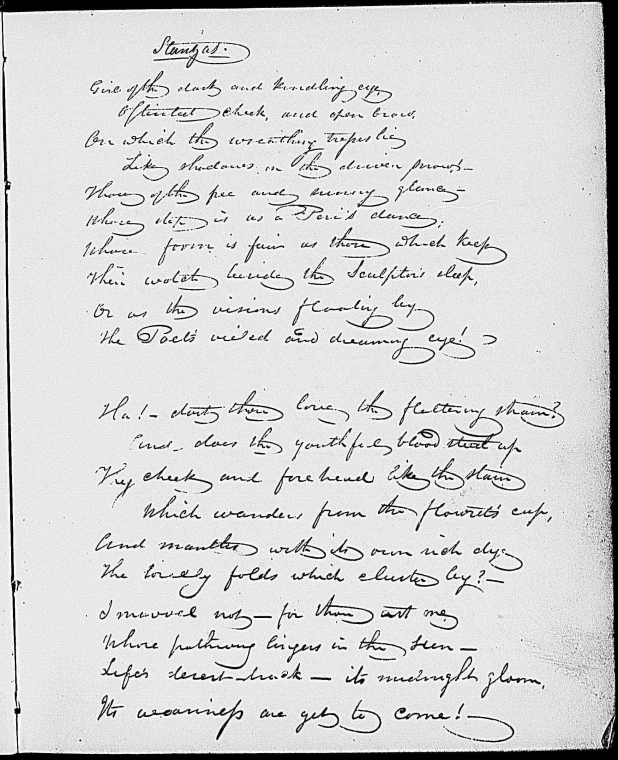 Stanzas.
Girl of the dark and kindling eye,
Of tinted cheek, and open brow,
On which the wreathing tresses lie
Like shadows on the driven snow—
Thou of the free and sunny glance—
Whose step is as a Peri's dance;
Whose form is fair as those which keep
Their watch beside the Sculptor's sleep,
Or as the visions floating by
The Poet's veiled and dreaming eye!
Ha!— dost thou love the flattering strain?
And does the youthful blood steal up
Thy cheek and forehead like the stain
Which wanders from the flowret's cup,
And mantles with its own rich dye
The lovely folds which cluster by?—
I marvel not — for thou art one
Whose pathway lingers in the sun —
Life's desert-track — its midnight gloom,
Its weariness are yet to come!—